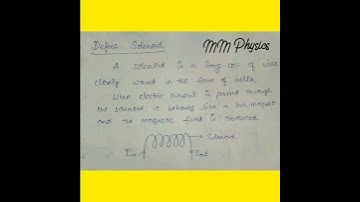 Define Solenoid
MM Physics
A solenoid is a long coil of wire
closely wound in the form of helix.
When electric current is passed through
the solenoid, it behaves like a bar magnet
and the magnetic field is produced.
Solenoid